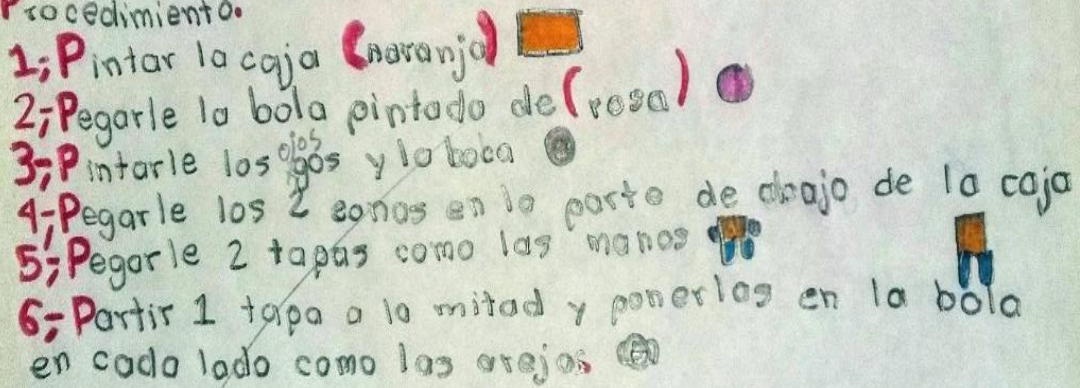 Procedimiento.
1;Pintar la caja (naranja)
2;Pegarle la bola pintado de (rosa)
3;Pintarle los ojos y la boca
4;Pegarle los 2 conos en la parte de abajo de la caja
5;Pegarle 2 tapas como las manos
6;Partir 1 tapa a la mitad y ponerlas en la bola
en cada lado como las orejas